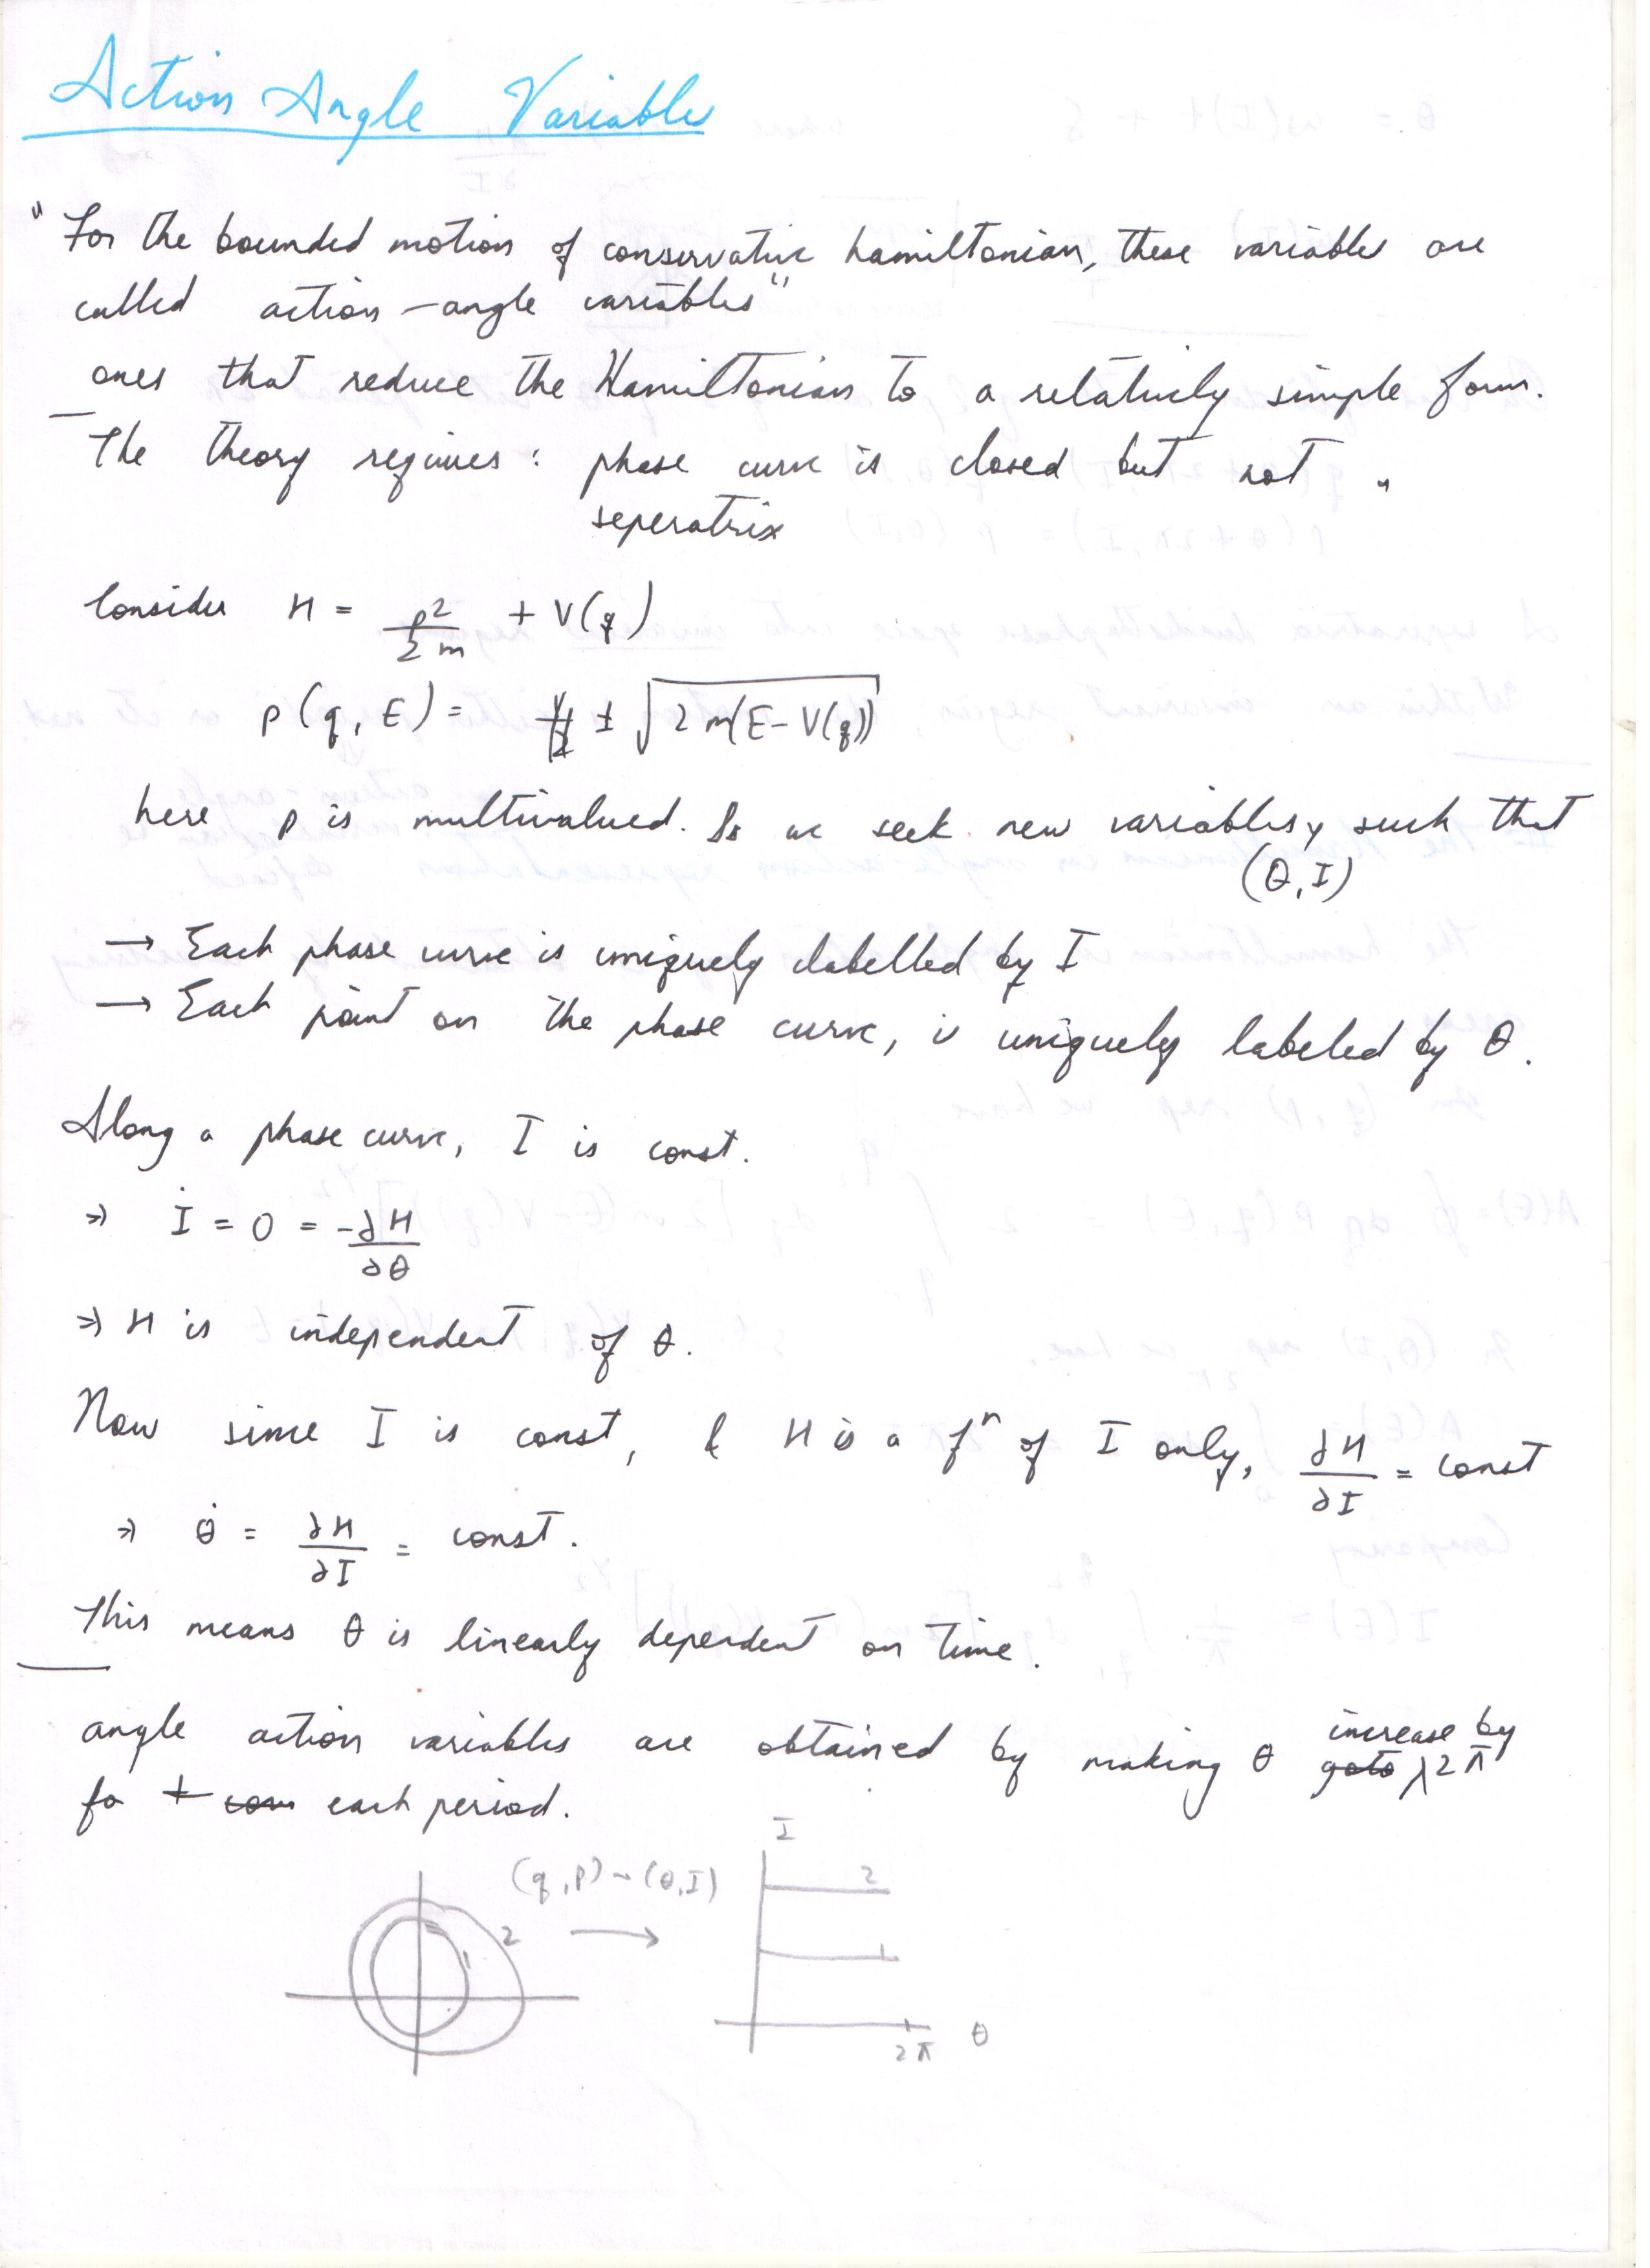 Action Angle Variables
"For the bounded motion of conservative hamiltonian, these variables are
called action-angle variables"
ones that reduce the Hamiltonian to a relatively simple form.
The theory requires : phase curve is closed but not a
seperatrix
Consider H = p²/2m + V(q)
p(q, E) = ± √(2m(E - V(q)))
here p is multivalued. So we seek new variables, such that
(θ, I)
→ Each phase curve is uniquely labelled by I
→ Each point on the phase curve, is uniquely labeled by θ.
Along a phase curve, I is const.
⇒ İ = 0 = -∂H/∂θ
⇒ H is independent of θ.
Now since I is const, & H is a fⁿ of I only, ∂H/∂I = const
⇒ θ̇ = ∂H/∂I = const.
This means θ is linearly dependent on time.
angle action variables are obtained by making θ increase by 2π
fo each period.
(q,p) → (θ,I)
I
2
1
2
1
2π θ